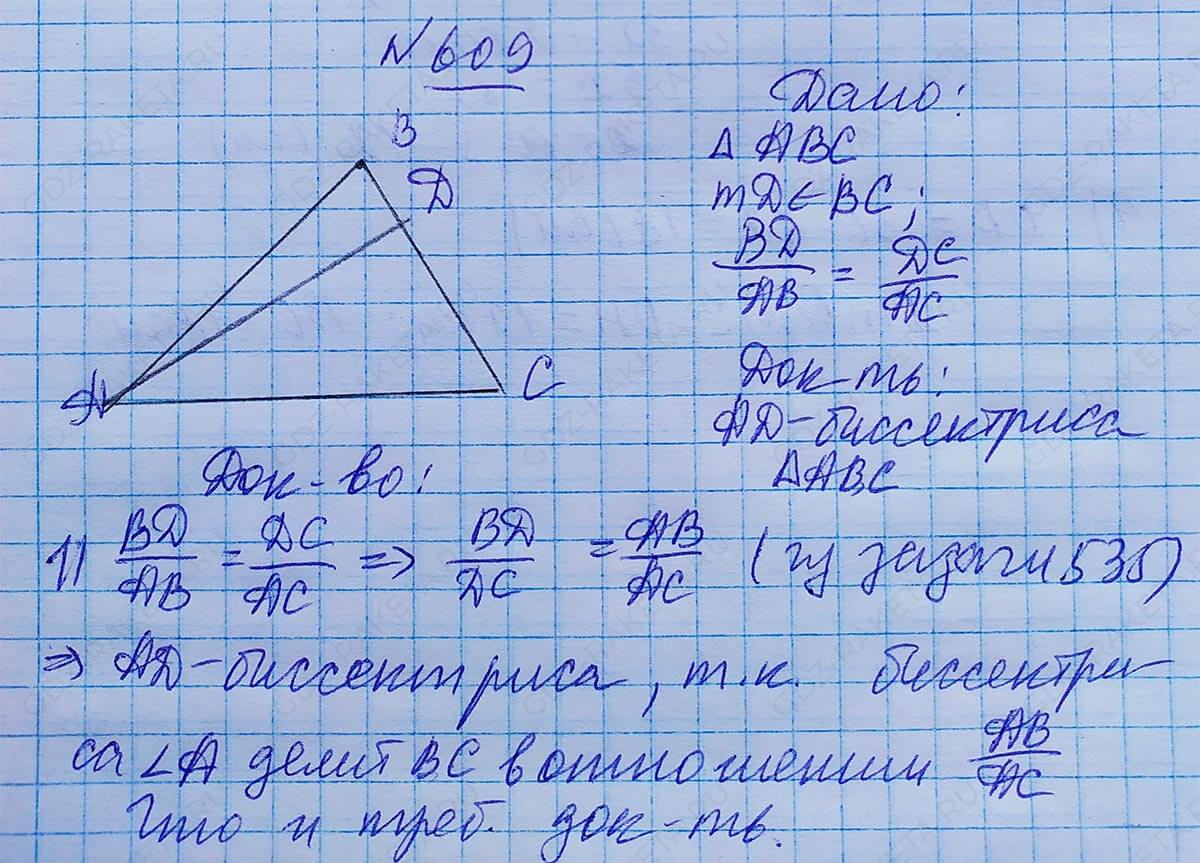 N 609
B
D
A
C
Дано:
Δ ABC
т D ∈ BC;
BD/AB = DC/AC
Док-ть:
AD - биссектриса
Δ ABC
Док-во:
1) BD/AB = DC/AC => BD/DC = AB/AC (из задачи 535)
=> AD - биссектриса, т.к. биссектри-
са ∠A делит BC в отношении AB/AC
Что и треб. док-ть.